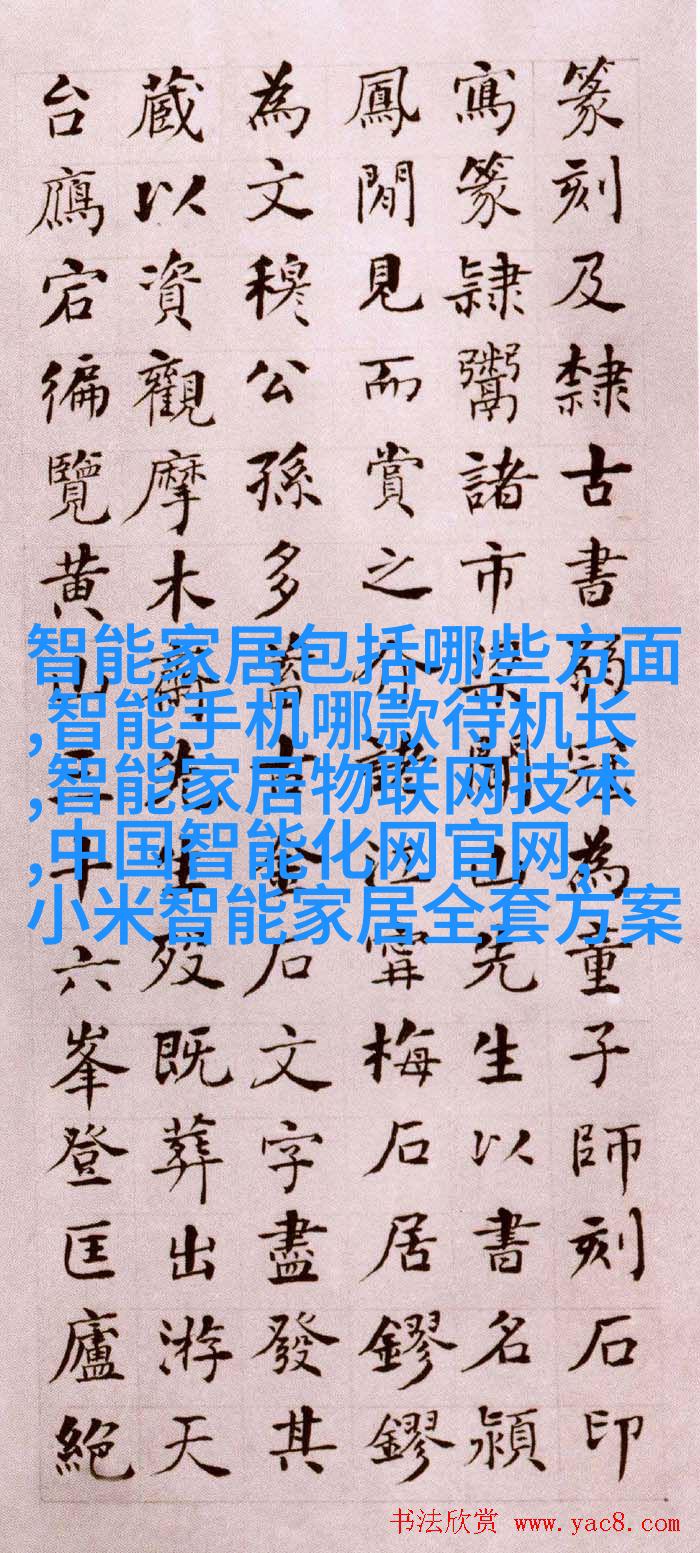 篆刻及隸古書弱冠為童子師刻石印
寫篆隸鬻諸市梁聞山先生以書名潁
鳳閒見而賞之介江甯梅石居鏐鏐
為文穆公孫多蓄古金石文字盡發其
藏以資觀摩木生歿既葬出游天
台鴈宕徧覽黃山三十六峯登匡廬絕
智能家居包括哪些方面
,智能手机哪款待机长
,智能家居物联网技术
,中国智能化网官网,
小米智能家居全套方案
书法欣赏 www.yac8.com